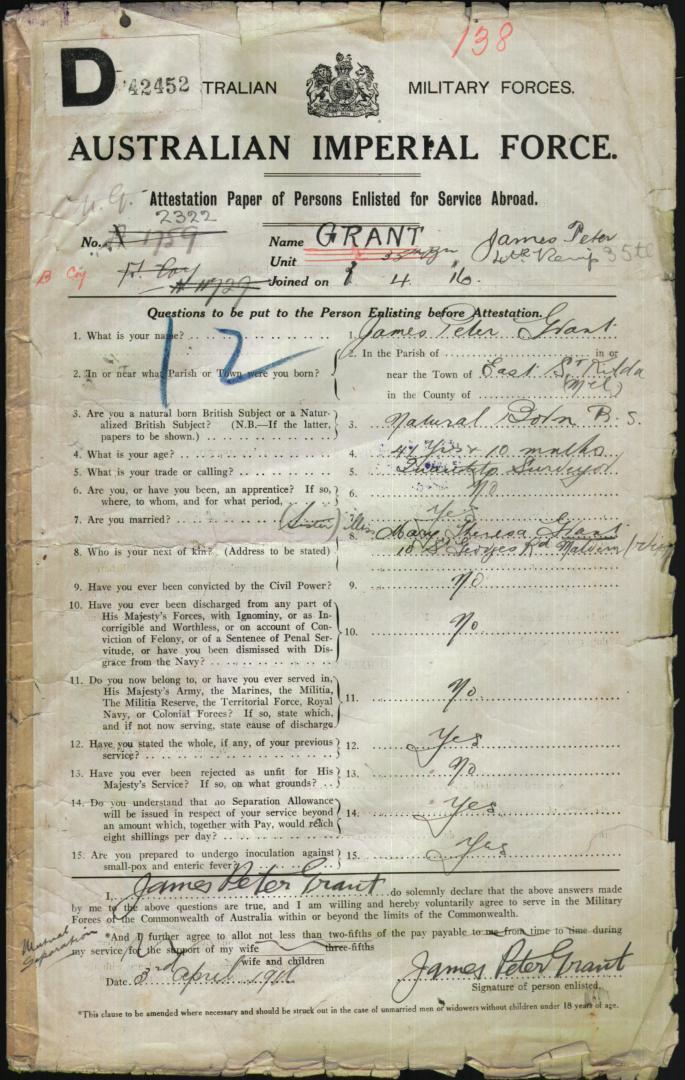 138
D 42452 TRALIAN MILITARY FORCES.
AUSTRALIAN IMPERIAL FORCE.
Attestation Paper of Persons Enlisted for Service Abroad.
2322
No. 1759 Name GRANT James Peter
Unit 35th
B Coy
Joined on 1 4 16.
Questions to be put to the Person Enlisting before Attestation.
12
1. What is your name? 1. James Peter Grant
2. In or near what Parish or Town were you born?
2. In the Parish of in or
near the Town of East St Kilda
in the County of
3. Are you a natural born British Subject or a Natur-
alized British Subject? (N.B.—If the latter,
papers to be shown.) 3. Natural Born B. S.
4. What is your age? 4. 41 yrs & 10 months
5. What is your trade or calling? 5. Surveyor
6. Are you, or have you been, an apprentice? If so,
where, to whom, and for what period, 6. No
7. Are you married? Yes
(Sister)
8. Who is your next of kin? (Address to be stated) 8. Mary Theresa Grant
10 St Georges Rd Malvern
9. Have you ever been convicted by the Civil Power? 9. No
10. Have you ever been discharged from any part of
His Majesty's Forces, with Ignominy, or as In-
corrigible and Worthless, or on account of Con-
viction of Felony, or of a Sentence of Penal Ser-
vitude, or have you been dismissed with Dis-
grace from the Navy? 10. No
11. Do you now belong to, or have you ever served in,
His Majesty's Army, the Marines, the Militia,
The Militia Reserve, the Territorial Force, Royal
Navy, or Colonial Forces? If so, state which,
and if not now serving, state cause of discharge 11. No
12. Have you stated the whole, if any, of your previous
service? 12. Yes
13. Have you ever been rejected as unfit for His
Majesty's Service? If so, on what grounds? 13. No
14. Do you understand that no Separation Allowance
will be issued in respect of your service beyond
an amount which, together with Pay, would reach
eight shillings per day? 14. Yes
15. Are you prepared to undergo inoculation against
small-pox and enteric fever? 15. Yes
I, James Peter Grant do solemnly declare that the above answers made
by me to the above questions are true, and I am willing and hereby voluntarily agree to serve in the Military
Forces of the Commonwealth of Australia within or beyond the limits of the Commonwealth.
Mutual
Separation
*And I further agree to allot not less than two-fifths of the pay payable to me from time to time during
three-fifths
my service for the support of my wife
wife and children
Date 3rd April 1916 James Peter Grant
Signature of person enlisted.
*This clause to be amended where necessary and should be struck out in the case of unmarried men or widowers without children under 18 years of age.